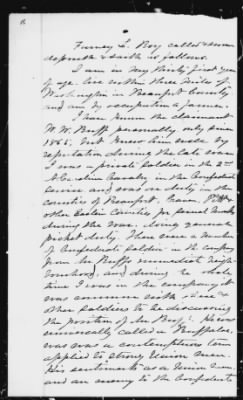 Furney L. Roy called & sworn
deposeth & saith as follows.
I am in my thirty first year
of age. live within three miles of
Washington in Beaufort County
and am by occupation a farmer.
I have known the claimant
W. W. personally only since
1865, but knew him more by
reputation during the late war.
I was a private soldier in the 2nd
N. Carolina Cavalry, in the Confederate
service and was on duty in the
counties of Beaufort, Craven, Pitt &
other Eastern Counties for
during the war, doing general
picket duty. There were a number
of Confederate soldiers in the company
from Mr. immediate neigh-
borhood, and during the whole
time I was in the company it
was common with
other soldiers to be discussing
the position of Mr. He was
universally called a Buffaloe,
was a contemptuous term
applied to strong Union men.
His sentiments as a Union man
and an enemy to the Confederate